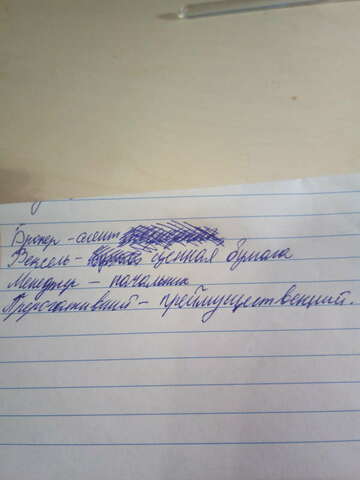 Брокер - агент
Вексель - ценная бумага
Менеджер - начальник
- преймущественный.